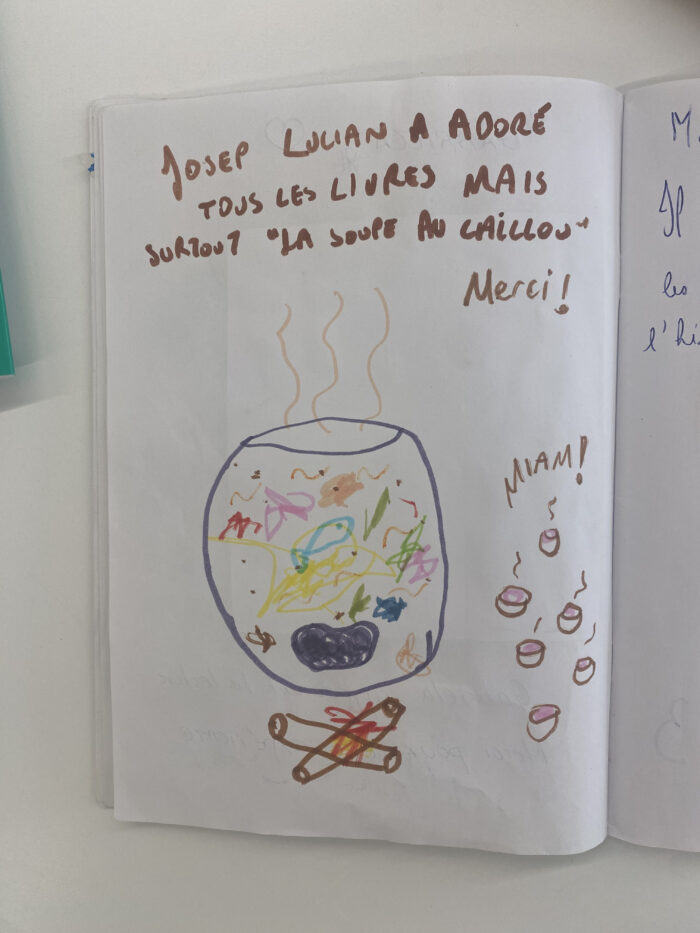 JOSEP LUCIAN A ADORÉ
TOUS LES LIVRES MAIS
SURTOUT "LA SOUPE AU CAILLOU"
Merci!
MIAM!
M.
Il
les
l'hi